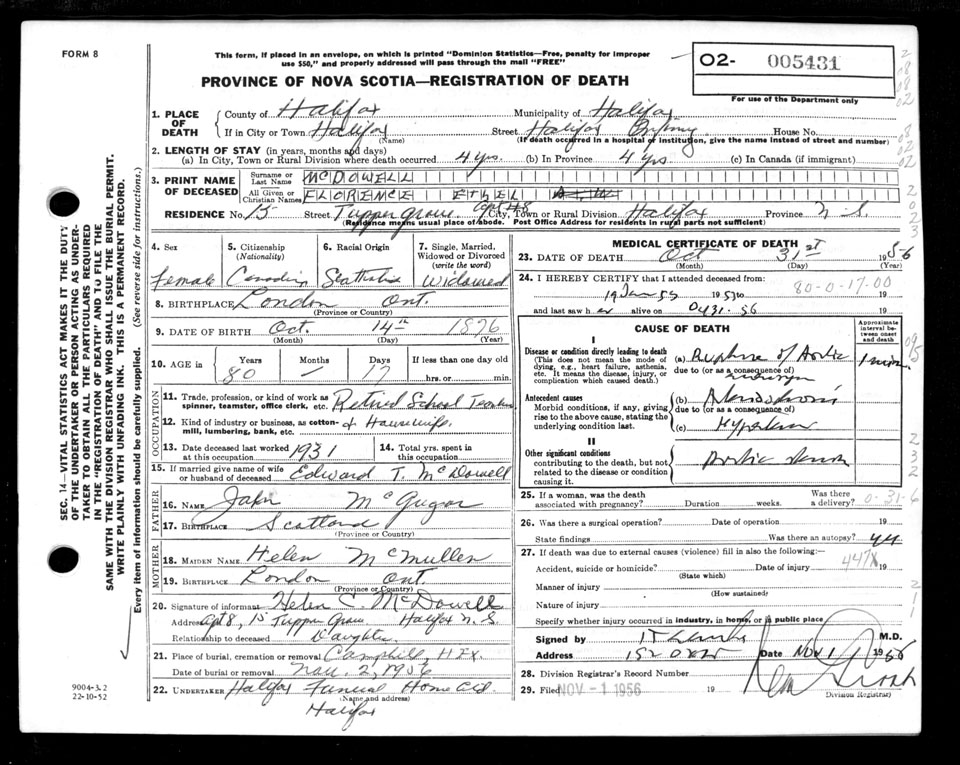 FORM 8
This form, if placed in an envelope, on which is printed "Dominion Statistics—Free, penalty for improper
use $50," and properly addressed will pass through the mail "FREE"
PROVINCE OF NOVA SCOTIA—REGISTRATION OF DEATH
02- 005431
For use of the Department only
1. PLACE OF DEATH
County of Halifax Municipality of Halifax
If in City or Town Halifax Street Halifax House No.
(Name) (If death occurred in a hospital or institution, give the name instead of street and number)
2. LENGTH OF STAY (in years, months and days)
(a) In City, Town or Rural Division where death occurred 4 yrs. (b) In Province 4 yrs. (c) In Canada (if immigrant)
3. PRINT NAME OF DECEASED
Surname or Last Name McDOWELL
All Given or Christian Names FLORENCE ETHEL
RESIDENCE No. 15 Street Tupper Grove Apt #8 City, Town or Rural Division Halifax Province N.S.
(Residence means usual place of abode. Post Office Address for residents in rural parts not sufficient)
4. Sex Female
5. Citizenship (Nationality) Canadian
6. Racial Origin
7. Single, Married, Widowed or Divorced (write the word) Widowed
8. BIRTHPLACE London Ont.
(Province or Country)
9. DATE OF BIRTH Oct. 14th 1876
(Month) (Day) (Year)
10. AGE in Years 80 Months — Days 17 If less than one day old hrs. or min.
OCCUPATION
11. Trade, profession, or kind of work as spinner, teamster, office clerk, etc. Retired School Teacher
12. Kind of industry or business, as cotton-mill, lumbering, bank, etc. & Housewife.
13. Date deceased last worked at this occupation 1931
14. Total yrs. spent in this occupation
15. If married give name of wife or husband of deceased Edward T. McDowell
FATHER
16. Name John McGugan
17. Birthplace Scotland
(Province or Country)
MOTHER
18. MAIDEN NAME Helen McMullen
19. BIRTHPLACE London Ont.
(Province or Country)
20. Signature of informant Helen C. McDowell
Address Apt 8, 15 Tupper Grove Halifax N.S.
Relationship to deceased Daughter
21. Place of burial, cremation or removal Camphill, Hfx.
Date of burial or removal Nov. 2, 1956
22. UNDERTAKER Halifax Funeral Home Ltd.
(Name and address)
Halifax
MEDICAL CERTIFICATE OF DEATH
23. DATE OF DEATH Oct 31st 1956
(Month) (Day) (Year)
24. I HEREBY CERTIFY that I attended deceased from:
80-0-17-00
19 Jan 55 19 to 19
and last saw her alive on Oct 31. 56 19
CAUSE OF DEATH
Approximate interval between onset and death
I
Disease or condition directly leading to death
(This does not mean the mode of dying, e.g., heart failure, asthenia, etc. It means the disease, injury, or complication which caused death.)
(a) Rupture of Aortic 1 min.
due to (or as a consequence of)
aneurysm
Antecedent causes
Morbid conditions, if any, giving rise to the above cause, stating the underlying condition last.
(b)
due to (or as a consequence of)
(c)
II
Other significant conditions
contributing to the death, but not related to the disease or condition causing it.
Aortic
25. If a woman, was the death associated with pregnancy? Duration weeks. Was there a delivery?
0-31-6
26. Was there a surgical operation? Date of operation 19
State findings Was there an autopsy?
27. If death was due to external causes (violence) fill in also the following:—
447X
Accident, suicide or homicide? Date of injury 19
(State which)
Manner of injury
(How sustained)
Nature of injury
Specify whether injury occurred in industry, in home, or in public place
Signed by M.D.
Address Date Nov 1 1956
28. Division Registrar's Record Number
29. Filed NOV - 1 1956 19
Division Registrar
SEC. 14—VITAL STATISTICS ACT MAKES IT THE DUTY
OF THE UNDERTAKER OR PERSON ACTING AS UNDER-
TAKER TO OBTAIN ALL THE PARTICULARS REQUIRED
IN THE "REGISTRATION OF DEATH" AND TO FILE THE
SAME WITH THE DIVISION REGISTRAR WHO SHALL ISSUE THE BURIAL PERMIT.
WRITE PLAINLY WITH UNFADING INK. THIS IS A PERMANENT RECORD.
Every item of information should be carefully supplied. (See reverse side for instructions.)
9004-3.2
22-10-52